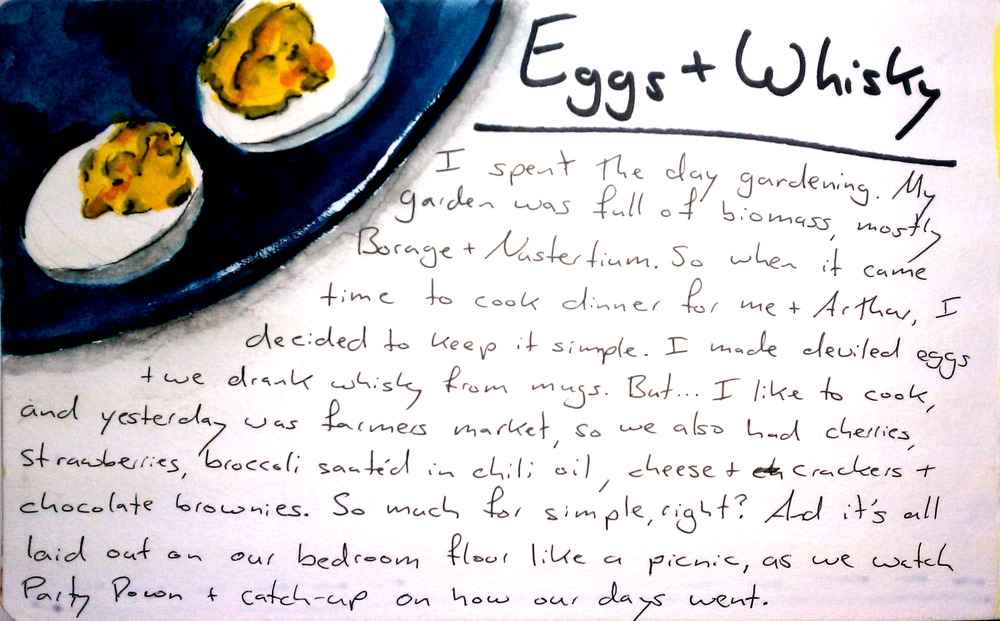 Eggs + Whisky
I spent the day gardening. My
garden was full of biomass, mostly
Borage + Nustertium. So when it came
time to cook dinner for me + Arthur, I
decided to keep it simple. I made deviled eggs
+ we drank whisky from mugs. But... I like to cook,
and yesterday was farmers market, so we also had cherries,
strawberries, broccoli sauté'd in chili oil, cheese + crackers +
chocolate brownies. So much for simple, right? And it's all
laid out on our bedroom floor like a picnic, as we watch
Party Down + catch-up on how our days went.